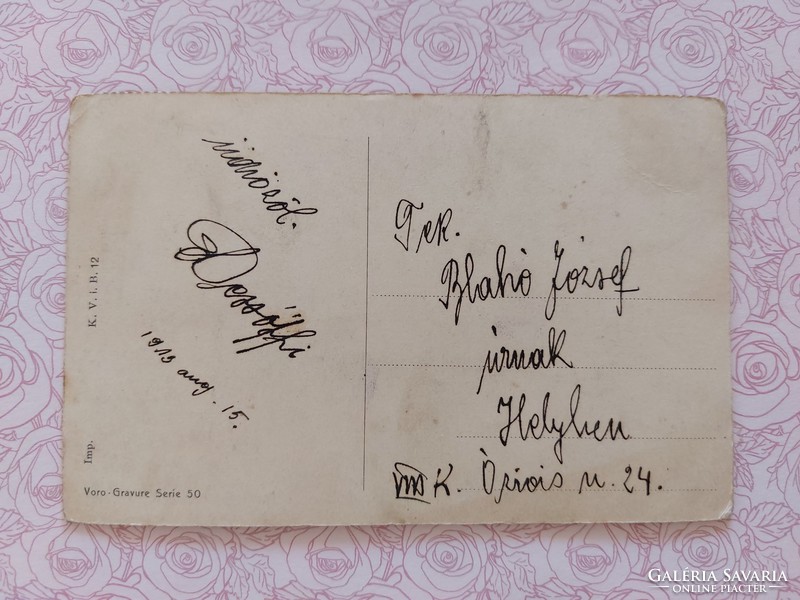 üdvözöl.
Dessőffi
1913 aug. 15.
K. V. i. B. 12
Imp.
Voro-Gravure Serie 50
Tek.
Blahó József
úrnak
Helyben
VIII K. u. 24.
GALÉRIA SAVARIA
ONLINE PIACTÉR